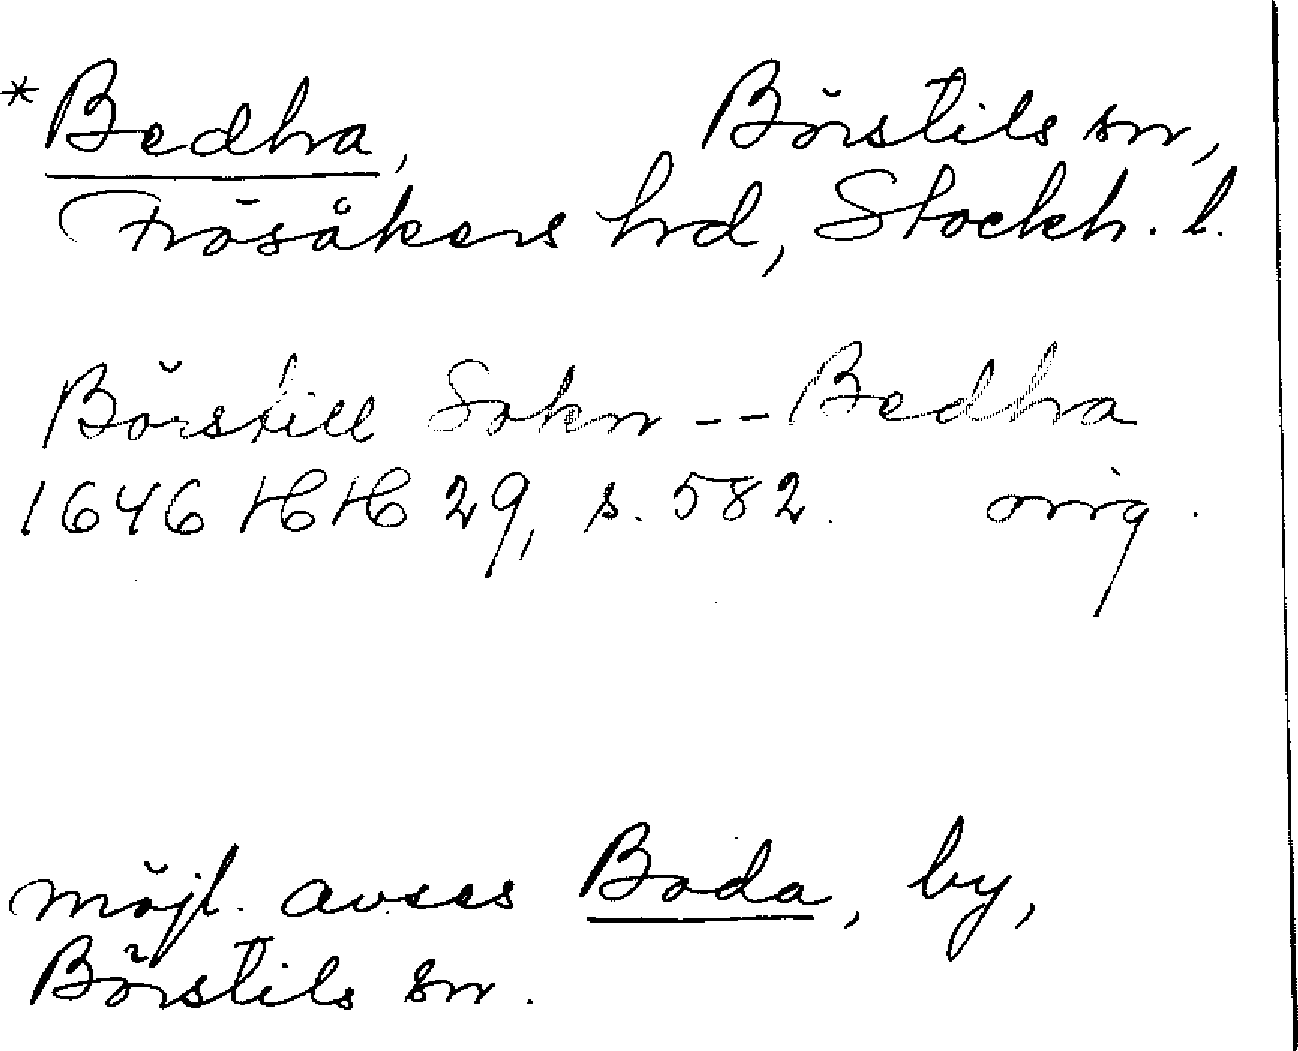 *Bedha, Börstils sn,
Frösåkers hrd, Stockh. l.
Börstill Sokn -- Bedha
1646 HH 29, s. 582. orig.
möjl. avses Boda, by,
Börstils sn.